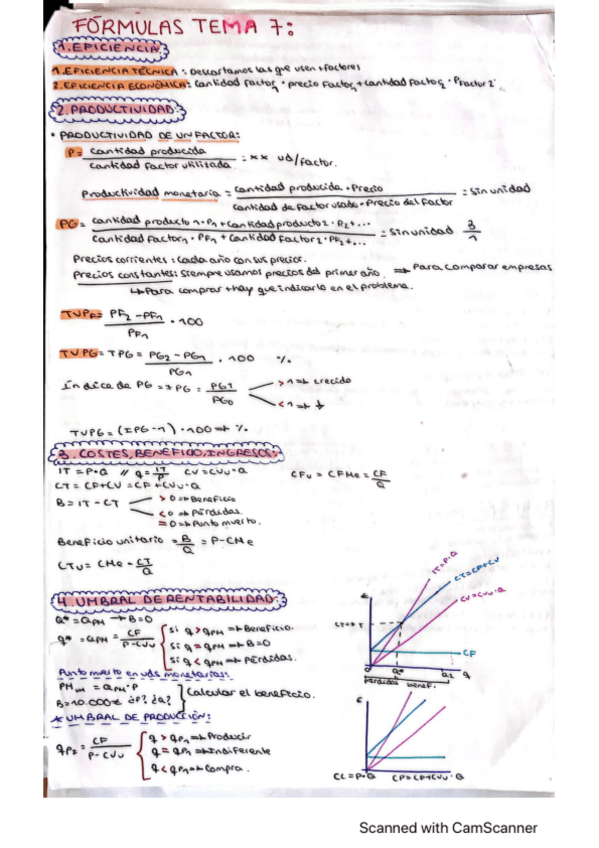 FÓRMULAS TEMA 7:
1. EFICIENCIA:
1. EFICIENCIA TÉCNICA: Descartamos las que usen + factores
2. EFICIENCIA ECONÓMICA: Cantidad Factor1 · precio Factor1 + Cantidad Factor2 · PFactor2
2. PRODUCTIVIDAD:
• PRODUCTIVIDAD DE UN FACTOR:
P = Cantidad producida / Cantidad Factor utilizada = xx ud/factor.
Productividad monetaria = Cantidad producida · Precio / Cantidad de Factor usado · Precio del Factor = Sin unidad
PG = Cantidad producto 1 · P1 + Cantidad producto 2 · P2 + ... / Cantidad Factor1 · PF1 + Cantidad Factor 2 · PF2 + ... = Sin unidad
Precios corrientes: Cada año con sus precios.
Precios constantes: Siempre usamos precios del primer año. ⇒ Para comparar empresas
↳ Para comprar + hay que indicarlo en el problema.
TVPF = PF2 - PF1 / PF1 · 100
TVPG = TPG = PG2 - PG1 / PG1 · 100 %
Índice de PG = IPG = PG1 / PG0 > 1 ⇒ crecido
< 1 ⇒ ↓
TVPG = (IPG - 1) · 100 ⇒ %
3. COSTES, BENEFICIO, INGRESOS:
IT = P·Q // q = IT/P CV = CVu·Q CFu = CFMe = CF/Q
CT = CF + CV = CF + CVu·Q
B = IT - CT > 0 ⇒ Beneficio
< 0 ⇒ Pérdidas.
= 0 ⇒ Punto muerto.
Beneficio unitario = B/Q = P - CMe
CTu = CMe = CT/Q
4. UMBRAL DE RENTABILIDAD:
Q* = QPM → B = 0
q* = QPM = CF / P - CVu
Si q > qPM ⇒ Beneficio.
Si q = qPM ⇒ B = 0
Si q < qPM ⇒ Pérdidas.
Punto muerto en uds monetarias:
PMum = QPM · P
B = 10.000€ ¿P? ¿Q? Calcular el beneficio.
UMBRAL DE PRODUCCIÓN:
= CF / P - CVu
q > qP1 ⇒ Producir
q = qP1 ⇒ Indiferente
q < qP1 ⇒ Compra.
€
IT = P·Q
CT = CF + CV
CV = CVu·Q
CF
0 Q* q
Pérdidas Benef.
€
CC = P·Q CP = CF + CVu·Q
Scanned with CamScanner